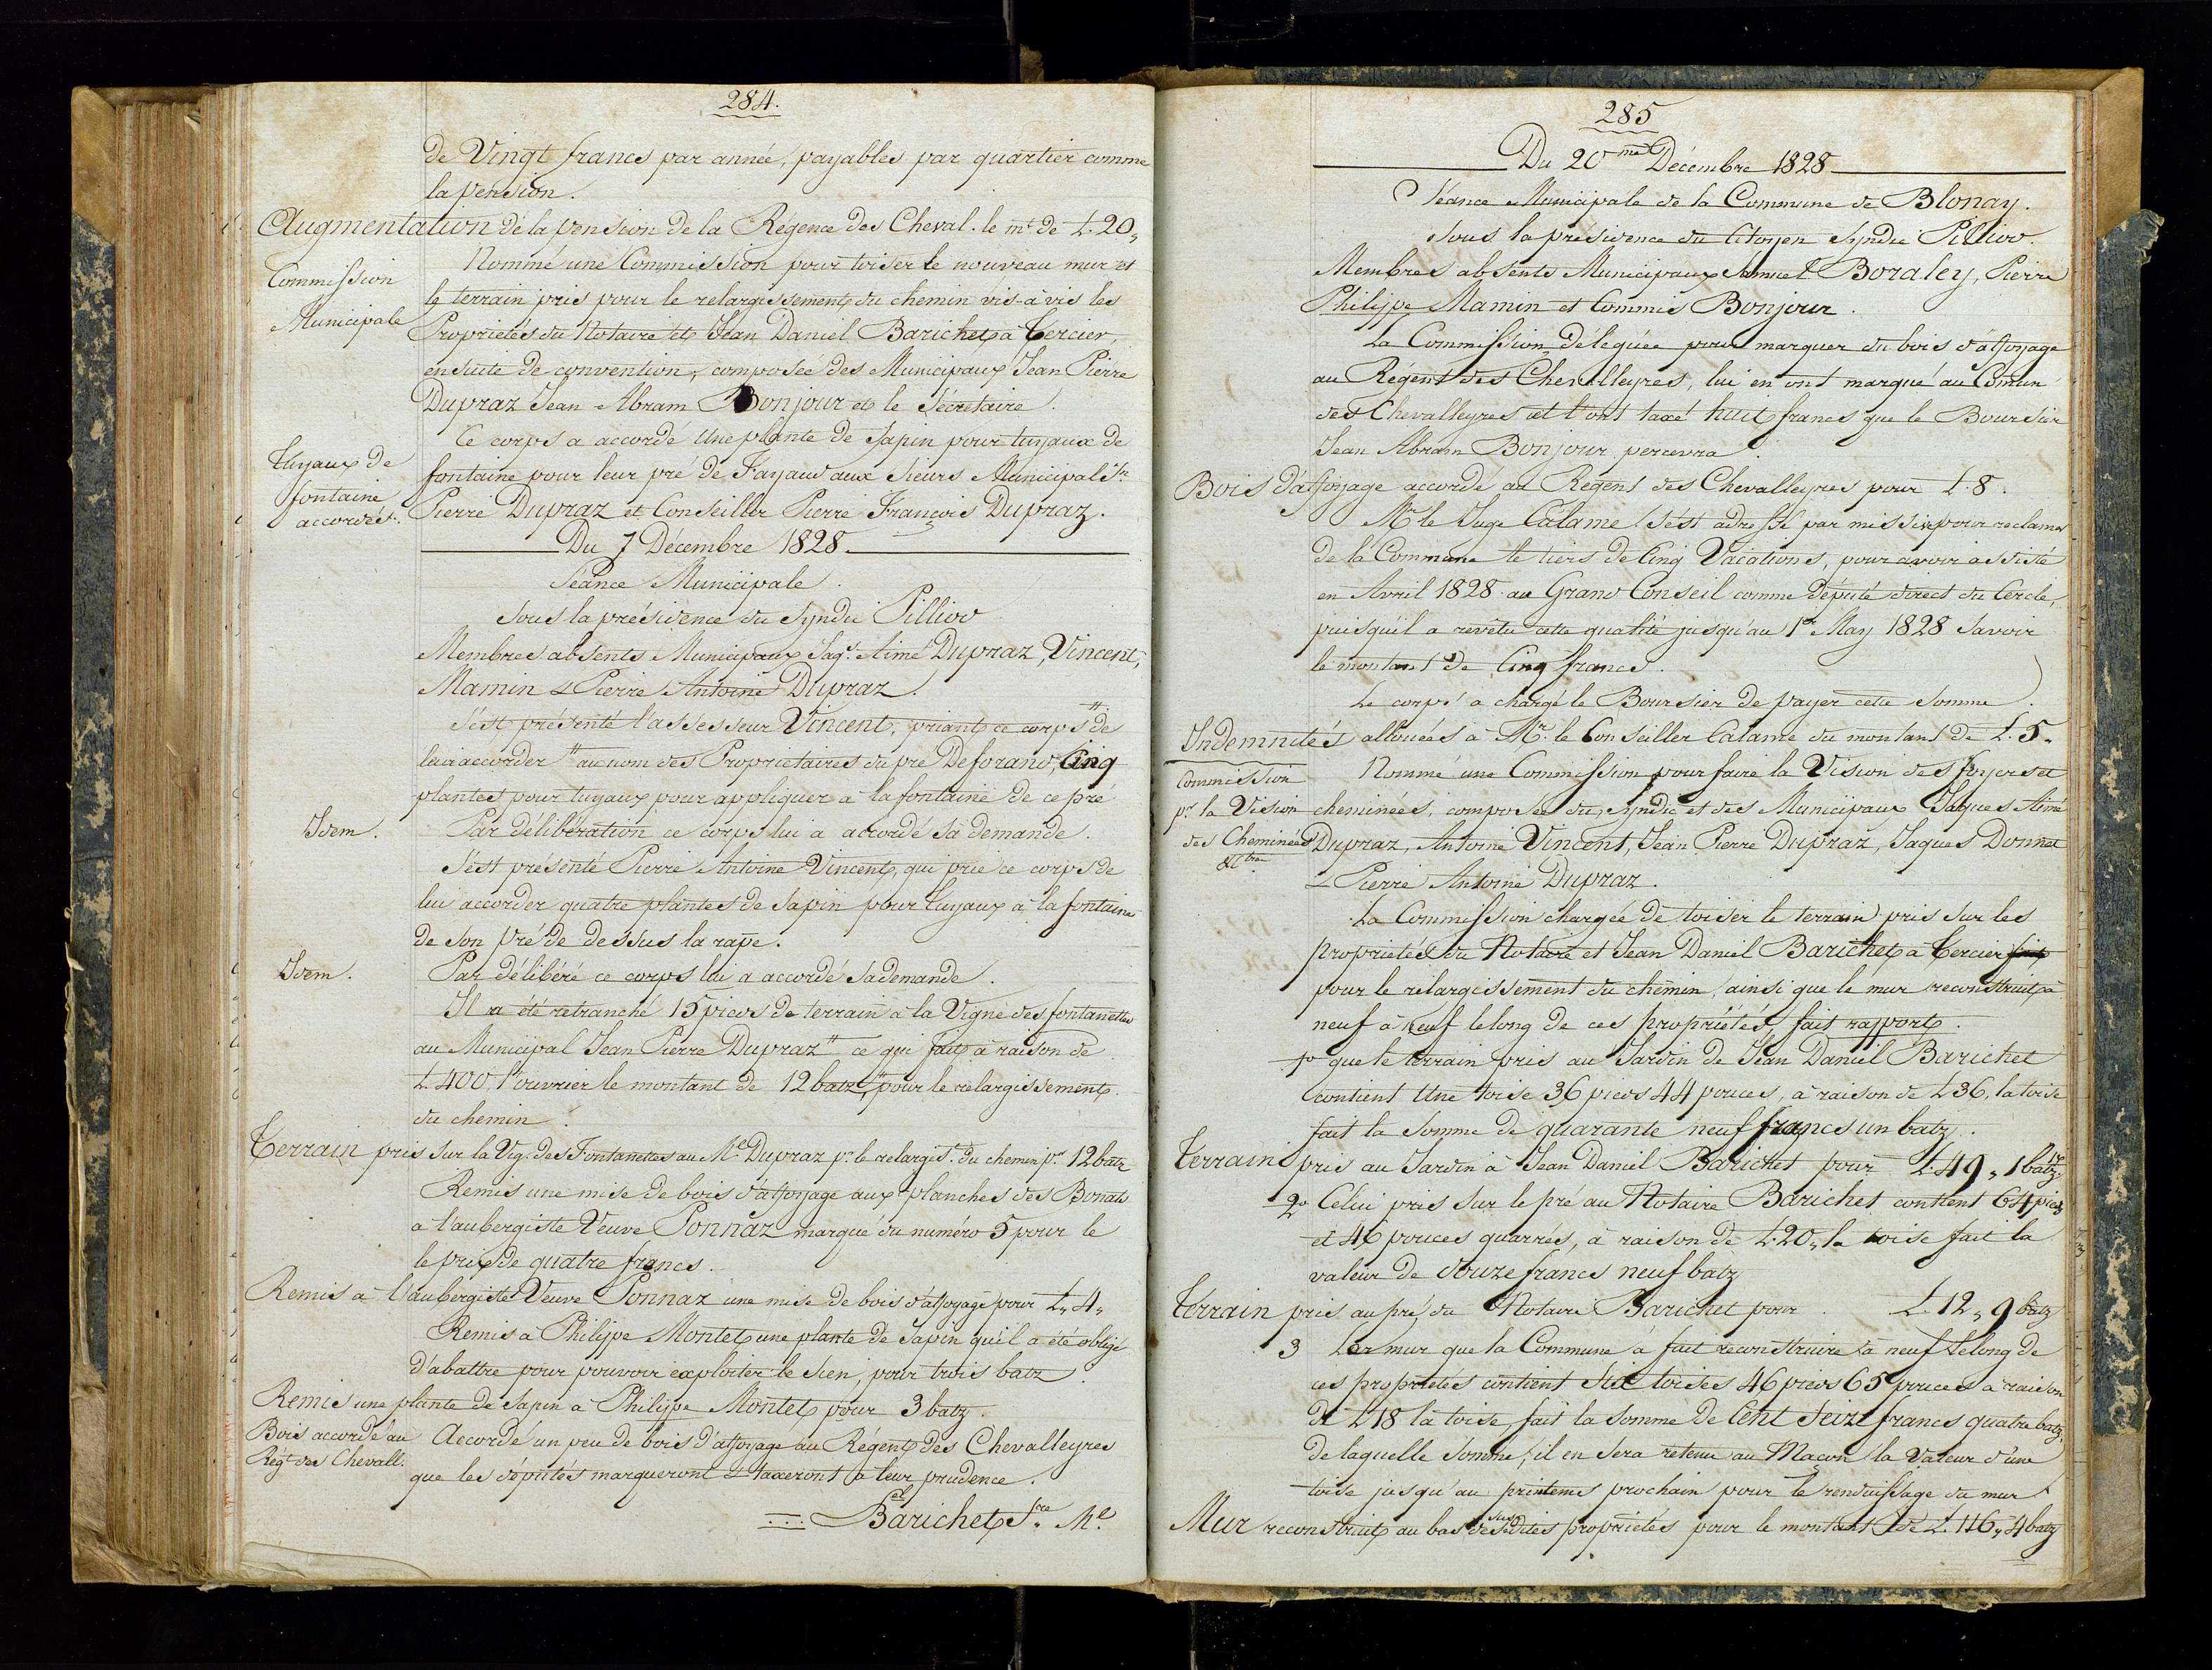 284.
de Vingt francs par année, payables par quartier comme
la pension.
Augmentation de la pension de la Régence des Cheval. le mt de L. 20„
Commission
Municipale
Nommé une Commission pour toiser le nouveau mur et
le terrain pris pour le relargissement du chemin vis-à-vis les
Proprietés du Notaire et Jean Daniel Barichet à Tercier,
ensuite de convention, composée des Municipaux Jean Pierre
Dupraz Jean Abram Bonjour et le Sécretaire.
Tuyaux de
fontaine
accordés.
Ce corps a accordé une plante de Sapin pour tuyaux de
fontaine pour leur pré de Fayaux aux Sieurs Municipal Jn
Pierre Dupraz et Conseiller Pierre François Dupraz.
Du 7 Décembre 1828.
Séance Municipale.
Sous la présidence du Syndic Pilliod
Membres absents Municipaux Jaqs. Aimé Dupraz, Vincent,
Mamin & Pierre Antoine Dupraz.
S'est présenté l'assesseur Vincent, priant ce corps de
lui accorder " au nom des Proprietaires du pré Deforand, Cinq
plantes pour tuyaux pour appliquer à la fontaine de ce pré
Idem.
Par délibération ce corps lui a accordé sa demande.
S'est presenté Pierre Antoine Vincent, qui prie ce corps de
lui accorder quatre plantes de Sapin pour tuyaux à la fontaine
de son Pré de dessus la rape.
Idem.
Par délibéré ce corps lui a accordé sa demande.
Il a été retranché 15 pieds de terrain à la Vigne des fontanettes
au Municipal Jean Pierre Dupraz " ce qui fait à raison de
L. 400. l'ouvrier le montant de 12 batz, " pour le relargissement
du chemin.
Terrain pris sur la Vig. des Fontanettes au Ml. Dupraz pr. le relargist. du chemin pr. 12 batz
Remis une mise de bois d'affoyage aux planches des Bonats
a l'aubergiste Veuve Ponnaz marqué du numéro 5 pour le
le prix de quatre francs.
Remis à l'aubergiste Veuve Ponnaz une mise de bois d'affoyage pour L„ 4„
Remis à Philippe Montet une plante de Sapin qu'il a été obligé
d'abattre pour pouvoir exploiter le sien, pour trois batz.
Remis une plante de Sapin à Philippe Montet pour 3 batz.
Bois accordé au
Régt des Chevall.
Accordé un peu de bois d'affoyage au Régent des Chevalleyres
que les députés marqueront & taxeront à leur prudence.
Barichet Sre Ml.
285
Du 20me Décembre 1828
Séance Municipale de la Commune de Blonay.
Sous la présidence du Citoyen Syndic Pilliod.
Membres absents Municipaux Samuel Boraley, Pierre
Philippe Mamin et Commis Bonjour.
La Commission déléguée pour marquer du bois d'affoyage
au Régent des Chevalleyres, lui en ont marqué au Comun
des Chevalleyres et l'ont taxé huit francs que le Boursier
Jean Abram Bonjour percevra.
Bois d'affoyage accordé au Régent des Chevalleyres pour L. 8.
Mr le Juge Calame s'est adressé par missive pour reclamer
de la Commune le tiers de Cinq Vacations, pour avoir assisté
en Avril 1828 au Grand Conseil comme député direct du Cercle,
puisqu'il a revétu cette qualité jusqu'au 1er May 1828 Savoir
le montant de Cinq francs.
Le corps a chargé le Boursier de payer cette somme.
Indemnités allouées à Mr. le Conseiller Calame du montant de L. 5.
Commission
pr. la Vision
des Cheminées
Nommé une Commission pour faire la Vision des foyers et
cheminées, composée du Syndic et des Municipaux Jaques Aimé
Dupraz, Antoine Vincent, Jean Pierre Dupraz, Jaques Donnet
& Pierre Antoine Dupraz.
La Commission chargée de toiser le terrain pris sur les
proprietés du Notaire et Jean Daniel Barichet à Tercier fait
pour le relargissement du chemin, ainsi que le mur reconstruit à
neuf à neuf le long de ces propriétés, fait rapport.
1o que le terrain pris au Jardin de Jean Daniel Barichet
contient Une toise 36 pieds 44 pouces, à raison de L 36, la toise
fait la Somme de quarante neuf francs un batz.
Terrain pris au Jardin à Jean Daniel Barichet pour L. 49„ 1 batz.
2o Celui pris sur le pré au Notaire Barichet contient 64 pieds
et 46 pouces quarrés, à raison de L. 20„ la toise fait la
valeur de douze francs neuf batz
Terrain pris au pré du Notaire Barichet pour L. 12„ 9 batz
3 Le mur que la Commune à fait reconstruire à neuf Le long de
ces proprietés contient Six toises 46 pieds 65 pouces à raison
de L 18 la toise, fait la somme de Cent Seize francs quatre batz,
de laquelle somme, il en sera retenu au Maçon la Valeur d'une
toise jusqu'au printems prochain pour le renduissage du mur
Mur reconstruit au bas des susdites proprietés pour le montant de L. 116„ 4 batz